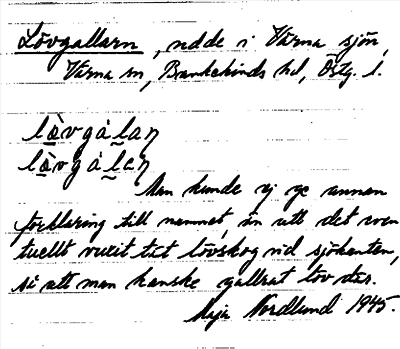 Lövgallarn, udde i Värna sjön,
Värna sn, Bankekinds hd, Östg. l.
lòvgálaɳ
lòvgálaɳ
Man kunde ej ge annan
förklaring till namnet, än att det even
tuellt vuxit tät lövskog vid sjökanten,
så att man kanske gallrat löv där.
Maja Nordlund 1945.